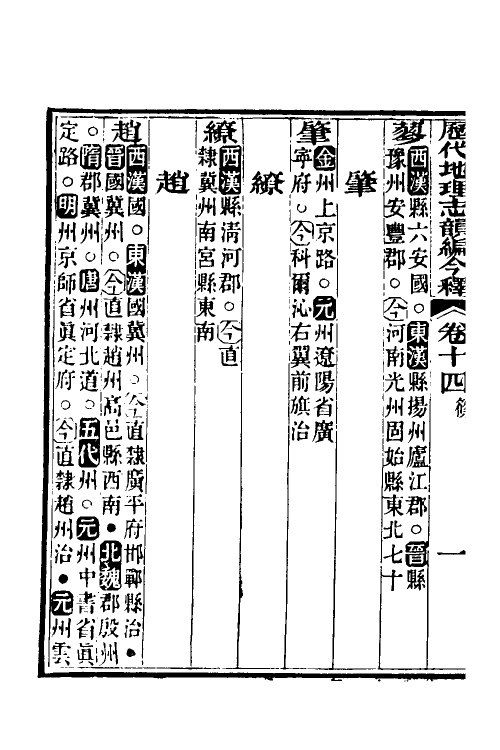 歷代地理志韻編今釋 卷十四 一
蓼 西漢縣六安國○東漢縣揚州廬江郡○晉縣
豫州安豐郡○今河南光州固始縣東北七十
肇
肇 金州上京路○元州遼陽省廣
寧府○今科爾沁右翼前旗治
繚
繚 西漢縣淸河郡○今直
隸冀州南宮縣東南
趙
趙 西漢國○東漢國冀州○今直隸廣平府邯鄲縣治●
晉國冀州○今直隸趙州高邑縣西南●北魏郡殷州
○隋郡冀州○唐州河北道○五代州○元州中書省眞
定路○明州京師省眞定府○今直隸趙州治●元州雲